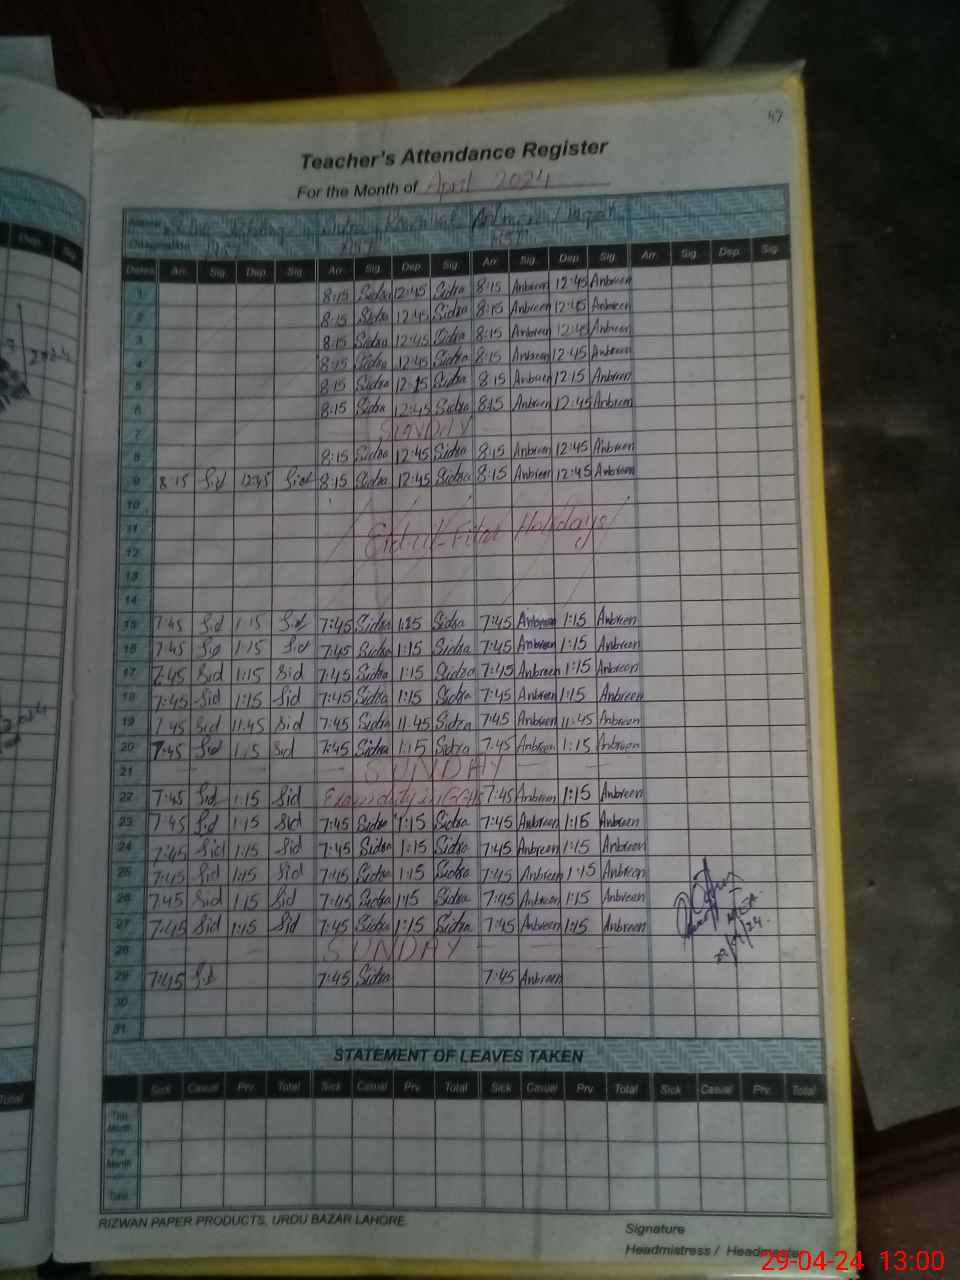 47
Teacher's Attendance Register
For the Month of April 2024
Designation
Dates Arr. Sig. Dep. Sig. Arr. Sig. Dep. Sig. Arr. Sig. Dep. Sig. Arr. Sig. Dep. Sig.
1 8:15 Sidra 12:45 Sidra 8:15 Anbreen 12:45 Anbreen
2 8:15 Sidra 12:45 Sidra 8:15 Anbreen 12:45 Anbreen
3 8:15 Sidra 12:45 Sidra 8:15 Anbreen 12:45 Anbreen
4 8:15 Sidra 12:45 Sidra 8:15 Anbreen 12:45 Anbreen
5 8:15 Sidra 12:15 Sidra 8:15 Anbreen 12:15 Anbreen
6 8:15 Sidra 12:45 Sidra 8:15 Anbreen 12:45 Anbreen
7 SUNDAY
8 8:15 Sidra 12:45 Sidra 8:15 Anbreen 12:45 Anbreen
9 8:15 Sid 12:45 Sid 8:15 Sidra 12:45 Sidra 8:15 Anbreen 12:45 Anbreen
10
11 Eid-ul-Fitar Holidays
12
13
14
15 7:45 Sid 1:15 Sid 7:45 Sidra 1:15 Sidra 7:45 Anbreen 1:15 Anbreen
16 7:45 Sid 1:15 Sid 7:45 Sidra 1:15 Sidra 7:45 Anbreen 1:15 Anbreen
17 7:45 Sid 1:15 Sid 7:45 Sidra 1:15 Sidra 7:45 Anbreen 1:15 Anbreen
18 7:45 Sid 1:15 Sid 7:45 Sidra 1:15 Sidra 7:45 Anbreen 1:15 Anbreen
19 7:45 Sid 11:45 Sid 7:45 Sidra 11:45 Sidra 7:45 Anbreen 11:45 Anbreen
20 7:45 Sid 1:15 Sid 7:45 Sidra 1:15 Sidra 7:45 Anbreen 1:15 Anbreen
21 SUNDAY
22 7:45 Sid 1:15 Sid Exam duty in GGHS 7:45 Anbreen 1:15 Anbreen
23 7:45 Sid 1:15 Sid 7:45 Sidra 1:15 Sidra 7:45 Anbreen 1:15 Anbreen
24 7:45 Sid 1:15 Sid 7:45 Sidra 1:15 Sidra 7:45 Anbreen 1:15 Anbreen
25 7:45 Sid 1:15 Sid 7:45 Sidra 1:15 Sidra 7:45 Anbreen 1:15 Anbreen
26 7:45 Sid 1:15 Sid 7:45 Sidra 1:15 Sidra 7:45 Anbreen 1:15 Anbreen
27 7:45 Sid 1:15 Sid 7:45 Sidra 1:15 Sidra 7:45 Anbreen 1:15 Anbreen
MEA
29/4/24
28 SUNDAY
29 7:45 Sid 7:45 Sidra 7:45 Anbreen
30
31
STATEMENT OF LEAVES TAKEN
Sick Casual Prv. Total Sick Casual Prv. Total Sick Casual Prv. Total Sick Casual Prv. Total
This Month
Pre Month
Total
RIZWAN PAPER PRODUCTS, URDU BAZAR LAHORE.
Signature
Headmistress / Headmaster
29-04-24 13:00